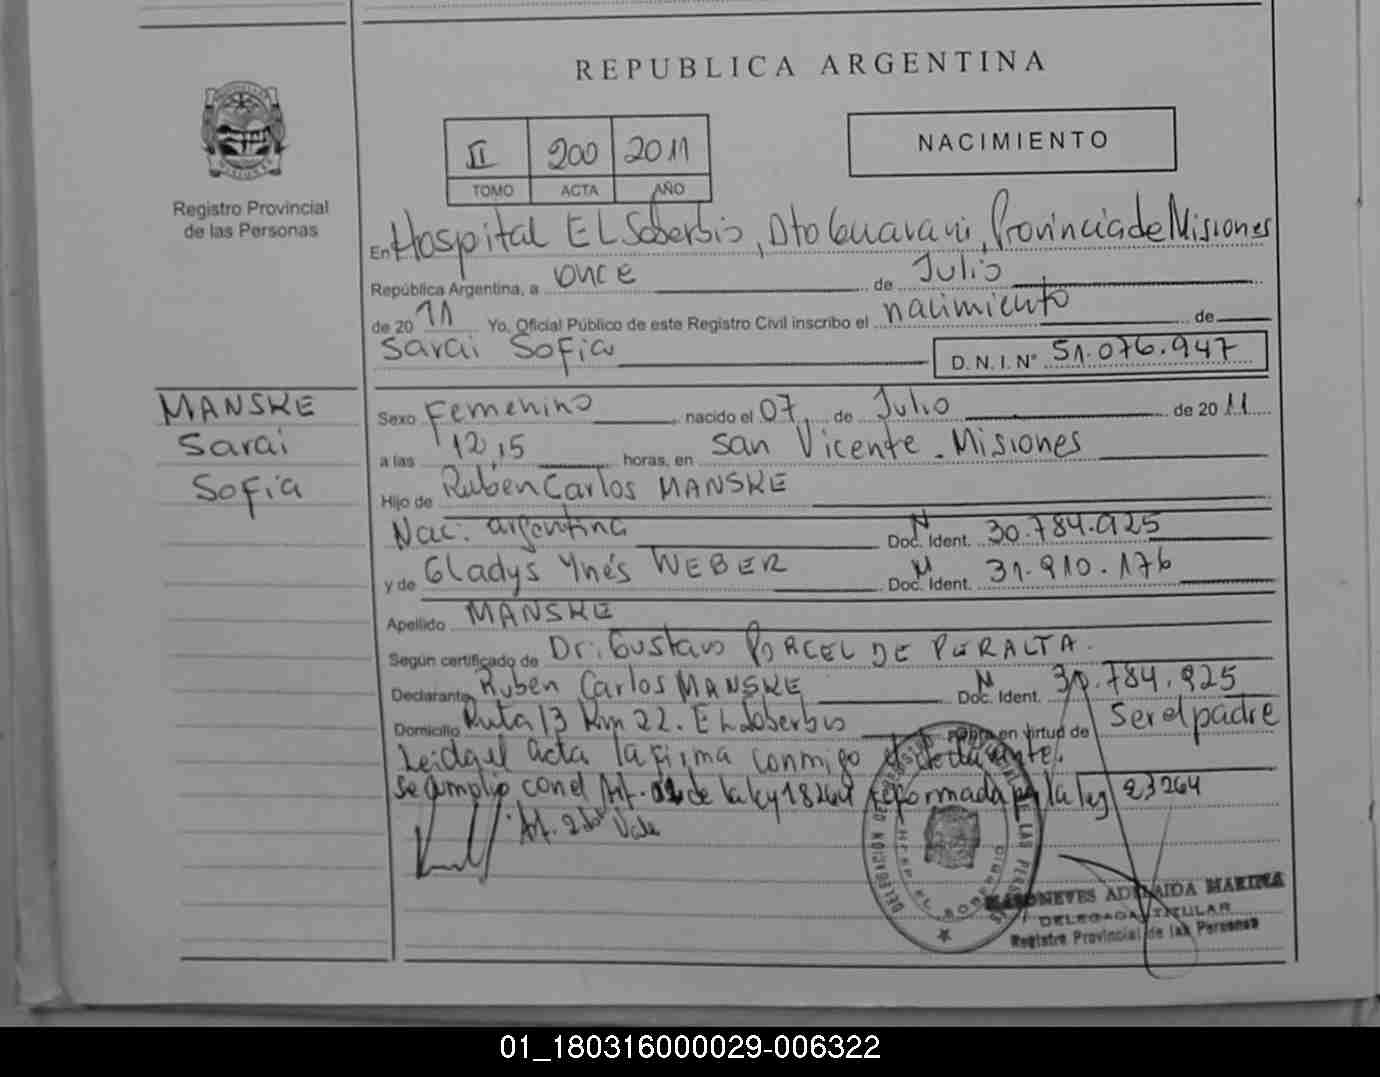 REPUBLICA ARGENTINA
Registro Provincial
de las Personas
II 200 2011
TOMO ACTA AÑO
NACIMIENTO
En Hospital EL Soberbio, Dto Guarani, Provincia de Misiones
República Argentina, a once de Julio
de 2011 Yo, Oficial Público de este Registro Civil inscribo el nacimiento de
Sarai Sofia D.N.I. N° 51.076.947
MANSKE
Sarai
Sofia
Sexo Femenino nacido el 07 de Julio de 2011
a las 12,15 horas, en San Vicente. Misiones
Hijo de Rubén Carlos MANSKE
Nac: argentina Doc. Ident. 30.784.925
y de Gladys Ynés WEBER Doc. Ident. 31.910.176
Apellido MANSKE
Según certificado de Dr. Gustavo PORCEL DE PERALTA.
Declarante Ruben Carlos MANSKE Doc. Ident. 30.784.925
Domicilio Ruta 13 Km 22. EL Soberbio en virtud de Ser el padre
Leida el acta la firma conmigo el declarante.
Se cumplio con el Art. de la ley 18264 reformada por la ley 23264
Art. 2do Vale
ADELAIDA MARINA
DELEGADA TITULAR
Registro Provincial de las Personas
01_180316000029-006322